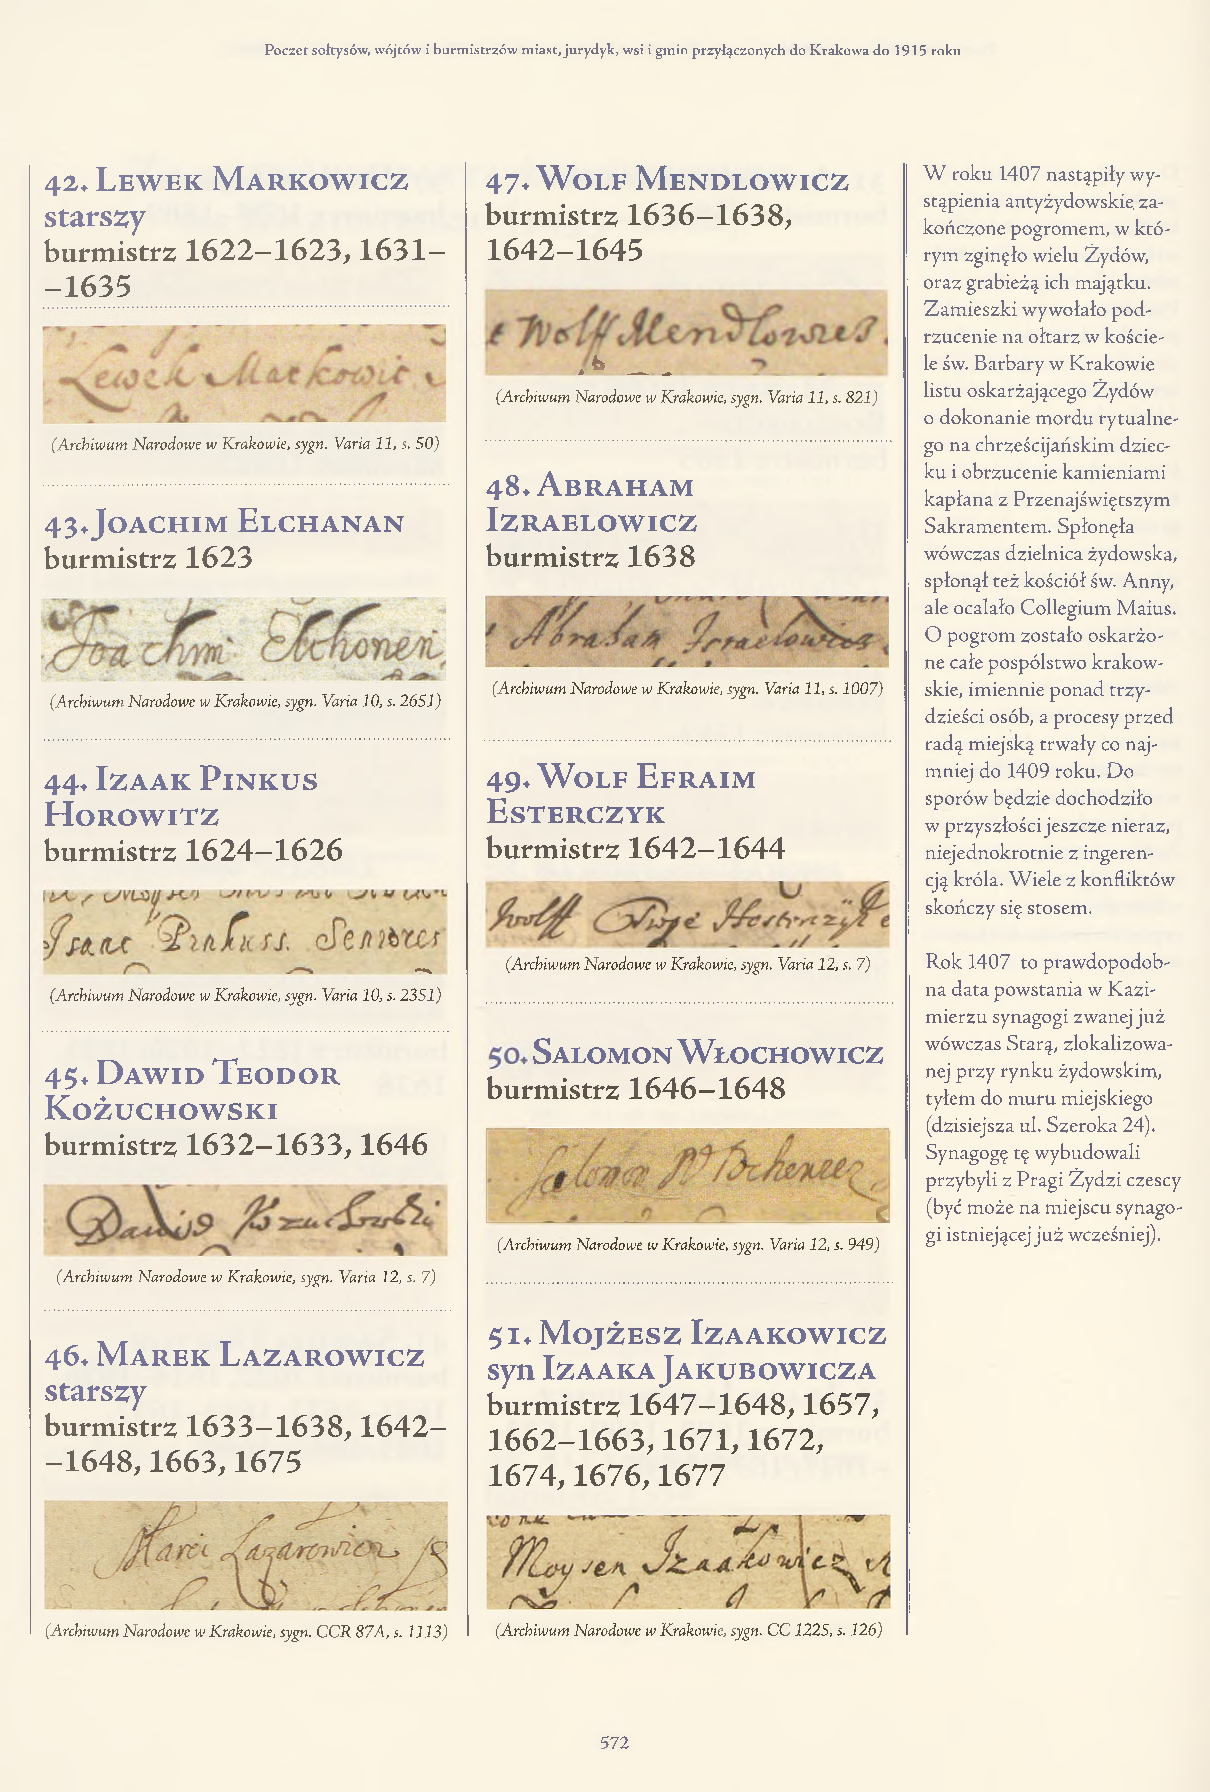 Poczet sołtysów, wójtów i burmistrzów miast, jurydyk, wsi i gmin przyłączonych do Krakowa do 1915 roku
42. Lewek Markowicz
starszy
burmistrz 1622–1623, 1631–
–1635
Lewek Markowic
(Archiwum Narodowe w Krakowie, sygn. Varia 11, s. 50)
43. Joachim Elchanan
burmistrz 1623
Joachim Elchonen
(Archiwum Narodowe w Krakowie, sygn. Varia 10, s. 2651)
44. Izaak Pinkus
Horowitz
burmistrz 1624–1626
Isaac Pinkuss. Seniores
(Archiwum Narodowe w Krakowie, sygn. Varia 10, s. 2351)
45. Dawid Teodor
Kożuchowski
burmistrz 1632–1633, 1646
Dawid Kozuchowski
(Archiwum Narodowe w Krakowie, sygn. Varia 12, s. 7)
46. Marek Lazarowicz
starszy
burmistrz 1633–1638, 1642–
–1648, 1663, 1675
Marci Lazarowicz
(Archiwum Narodowe w Krakowie, sygn. CCR 87A, s. 1113)
47. Wolf Mendlowicz
burmistrz 1636–1638,
1642–1645
Wolff Mendlowicz
(Archiwum Narodowe w Krakowie, sygn. Varia 11, s. 821)
48. Abraham
Izraelowicz
burmistrz 1638
Abraham Izraelowicz
(Archiwum Narodowe w Krakowie, sygn. Varia 11, s. 1007)
49. Wolf Efraim
Esterczyk
burmistrz 1642–1644
Wolff
(Archiwum Narodowe w Krakowie, sygn. Varia 12, s. 7)
50. Salomon Włochowicz
burmistrz 1646–1648
Salomon
(Archiwum Narodowe w Krakowie, sygn. Varia 12, s. 949)
51. Mojżesz Izaakowicz
syn Izaaka Jakubowicza
burmistrz 1647–1648, 1657,
1662–1663, 1671, 1672,
1674, 1676, 1677
Moysen Izaakowicz
(Archiwum Narodowe w Krakowie, sygn. CC 1225, s. 126)
W roku 1407 nastąpiły wy-
stąpienia antyżydowskie za-
kończone pogromem, w któ-
rym zginęło wielu Żydów,
oraz grabieżą ich majątku.
Zamieszki wywołało pod-
rzucenie na ołtarz w koście-
le św. Barbary w Krakowie
listu oskarżającego Żydów
o dokonanie mordu rytualne-
go na chrześcijańskim dziec-
ku i obrzucenie kamieniami
kapłana z Przenajświętszym
Sakramentem. Spłonęła
wówczas dzielnica żydowska,
spłonął też kościół św. Anny,
ale ocalało Collegium Maius.
O pogrom zostało oskarżo-
ne całe pospólstwo krakow-
skie, imiennie ponad trzy-
dzieści osób, a procesy przed
radą miejską trwały co naj-
mniej do 1409 roku. Do
sporów będzie dochodziło
w przyszłości jeszcze nieraz,
niejednokrotnie z ingeren-
cją króla. Wiele z konfliktów
skończy się stosem.
Rok 1407 to prawdopodob-
na data powstania w Kazi-
mierzu synagogi zwanej już
wówczas Starą, zlokalizowa-
nej przy rynku żydowskim,
tyłem do muru miejskiego
(dzisiejsza ul. Szeroka 24).
Synagogę tę wybudowali
przybyli z Pragi Żydzi czescy
(być może na miejscu synago-
gi istniejącej już wcześniej).
572